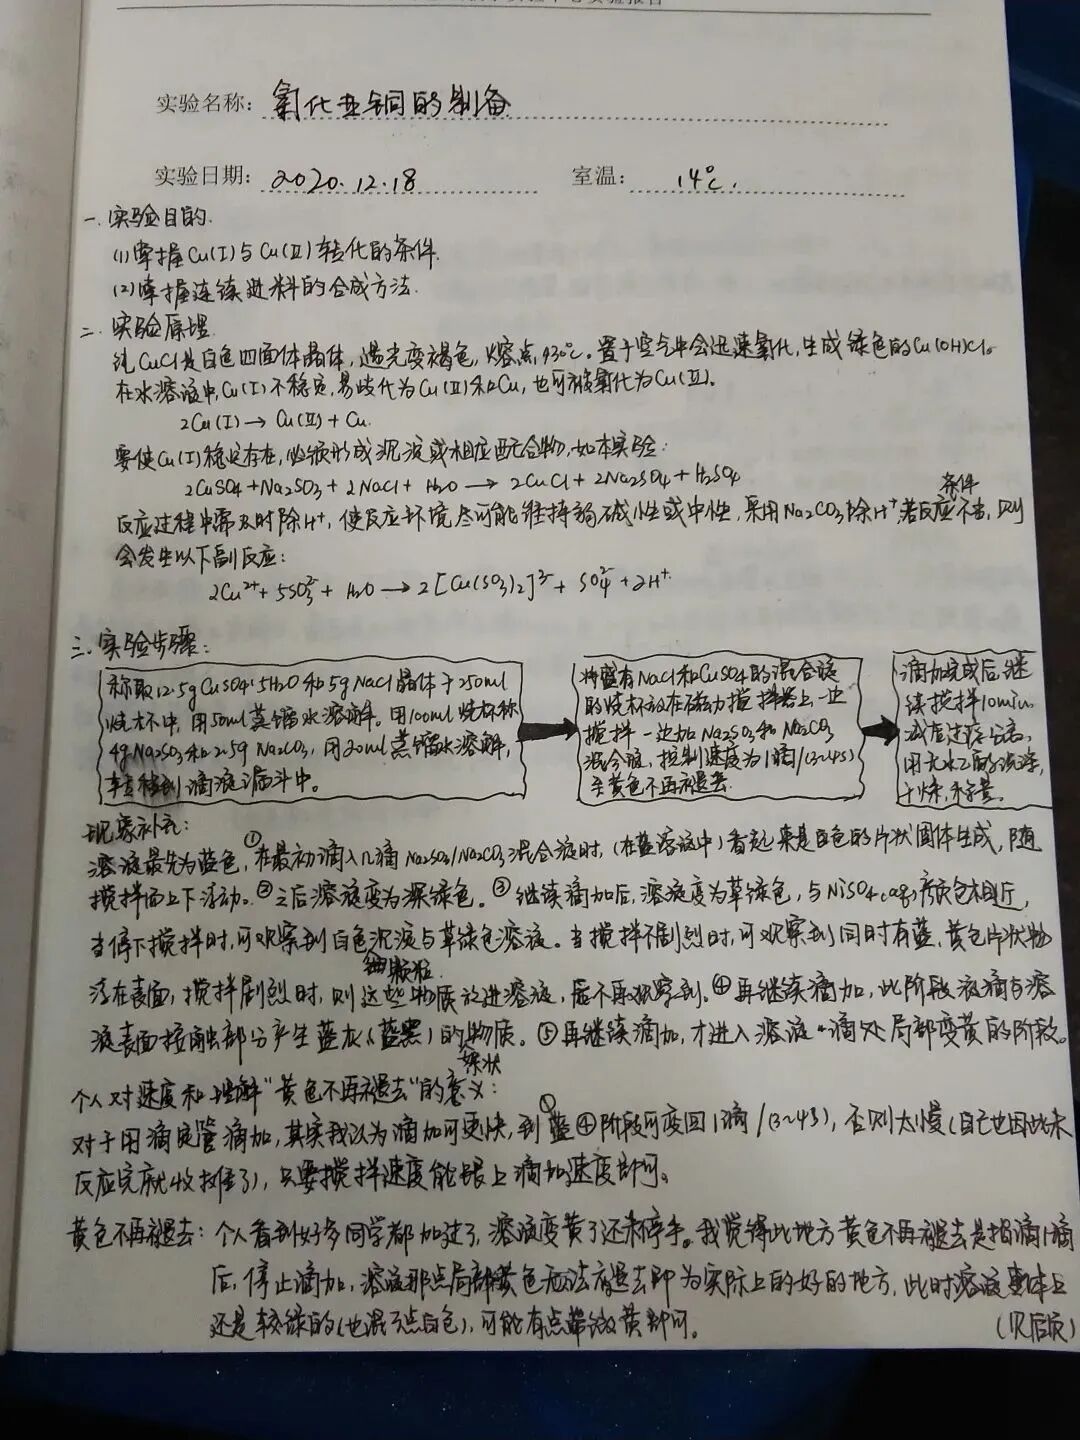 实验名称: 氯化亚铜的制备
实验日期: 2020.12.18 室温: 14℃.
一. 实验目的.
(1)掌握Cu(I)与Cu(II)转化的条件.
(2)掌握连续进料的合成方法.
二. 实验原理.
纯CuCl是白色四面体晶体, 遇光变褐色, 熔点430℃。置于空气中会迅速氧化, 生成绿色的Cu(OH)Cl。
在水溶液中, Cu(I)不稳定, 易歧化为Cu(II)和Cu, 也可被氧化为Cu(II)。
2Cu(I)→ Cu(II)+ Cu.
要使Cu(I)稳定存在, 必须形成沉淀或相应配合物, 如本实验:
2CuSO4+Na2SO3+2NaCl+ H2O → 2CuCl+2Na2SO4+H2SO4
反应过程中需及时除H+, 使反应环境尽可能维持弱碱性或中性, 采用Na2CO3除H+, 若反应条件不当, 则
会发生以下副反应:
2Cu2++5SO32-+ H2O → 2[Cu(SO3)2]3-+ SO42-+2H+.
三. 实验步骤:
称取12.5g CuSO4·5H2O和5g NaCl晶体于250ml
烧杯中, 用50ml蒸馏水溶解。用100ml烧杯称
4g Na2SO3和2.5g Na2CO3, 用20ml蒸馏水溶解,
转移到滴液漏斗中。
将盛有NaCl和CuSO4的混合液
的烧杯放在磁力搅拌器上, 一边
搅拌一边加Na2SO3和Na2CO3
混合液, 控制速度为1滴/(3~4s)
至黄色不再褪去.
滴加完成后, 继
续搅拌10min.
减压过滤
用无水乙醇
干燥, 称量。
现象补充:
溶液最先为蓝色, ①在最初滴入几滴Na2SO3/Na2CO3混合液时, (在蓝溶液中)看起来是白色的片状固体生成, 随
搅拌而上下浮动。②之后溶液变为深绿色。③继续滴加后, 溶液变为草绿色, 与NiSO4(aq)颜色相近,
当停下搅拌时, 可观察到白色沉淀与草绿色溶液。当搅拌不剧烈时, 可观察到同时有蓝, 黄色片状物
浮在表面, 搅拌剧烈时, 则这些细颗粒物质被进溶液, 居不再观察到。④再继续滴加, 此阶段液滴与溶
液表面接触部分产生蓝灰(蓝黑)的絮状物质。⑤再继续滴加, 才进入溶液一滴处局部变黄的阶段。
个人对速度和理解“黄色不再褪去”的意义:
对于用滴定管滴加, 其实我认为滴加可更快, 到④阶段可变回1滴/(3~4s), 否则太慢(自己也因此未
反应完就收摊了), 只要搅拌速度能跟上滴加速度即可。
黄色不再褪去: 个人看到好多同学都加过了, 溶液变黄了还未停手。我觉得此地方黄色不再褪去是指滴1滴
后, 停止滴加, 溶液那点局部黄色无法褪去即为实际上的好的地方, 此时溶液整体上
还是较绿的(也混了点白色), 可能有点带微黄即可。
(见后页)